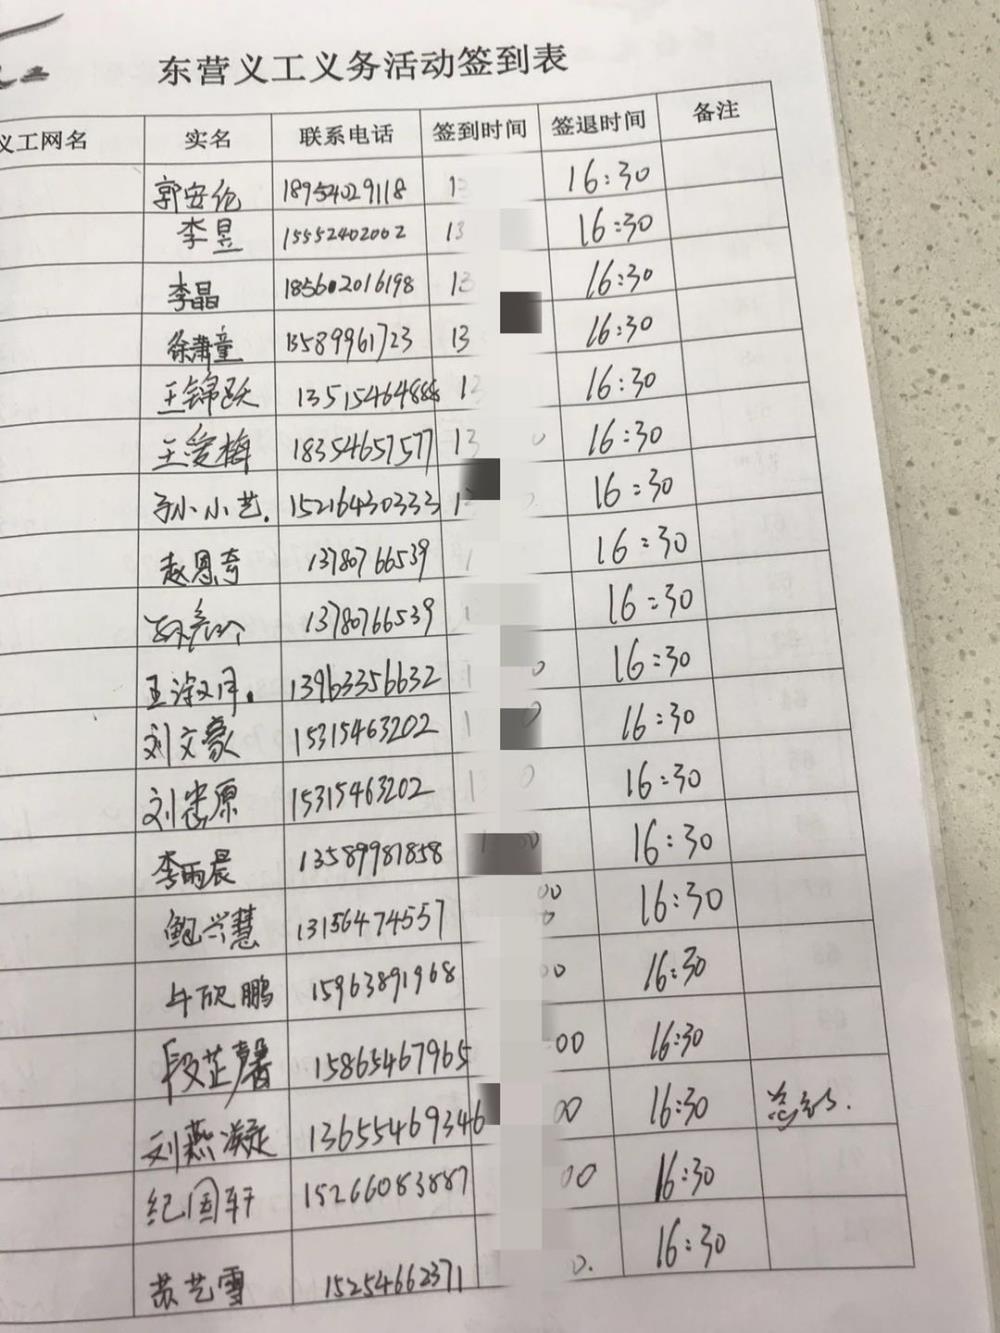 东营义工义务活动签到表
义工网名 实名 联系电话 签到时间 签退时间 备注
郭安伦 18954029118 13 16:30
李昱 15552402002 13 16:30
李晶 185602016198 13 16:30
徐萧童 13589961723 13 16:30
王锦跃 13515464888 13 16:30
王爱梅 18354657577 13 0 16:30
孙小艺. 15216430333 13 0. 16:30
赵恩奇 13780766539 1 16:30
13780766539 1 16:30
王 13963356632 1 0 16:30
刘文豪 15315463202 1 0 16:30
刘忠原 15315463202 1 0 16:30
李雨晨 13589981858 13 00 16:30
鲍兴慧 13156474557 00 16:30
牛欣鹏 15963891968 00 16:30
段芷馨 15865467965 00 16:30
刘燕凝 13655469346 00 16:30
纪国轩 15266083887 00 16:30
苏艺雪 15254662371 0. 16:30